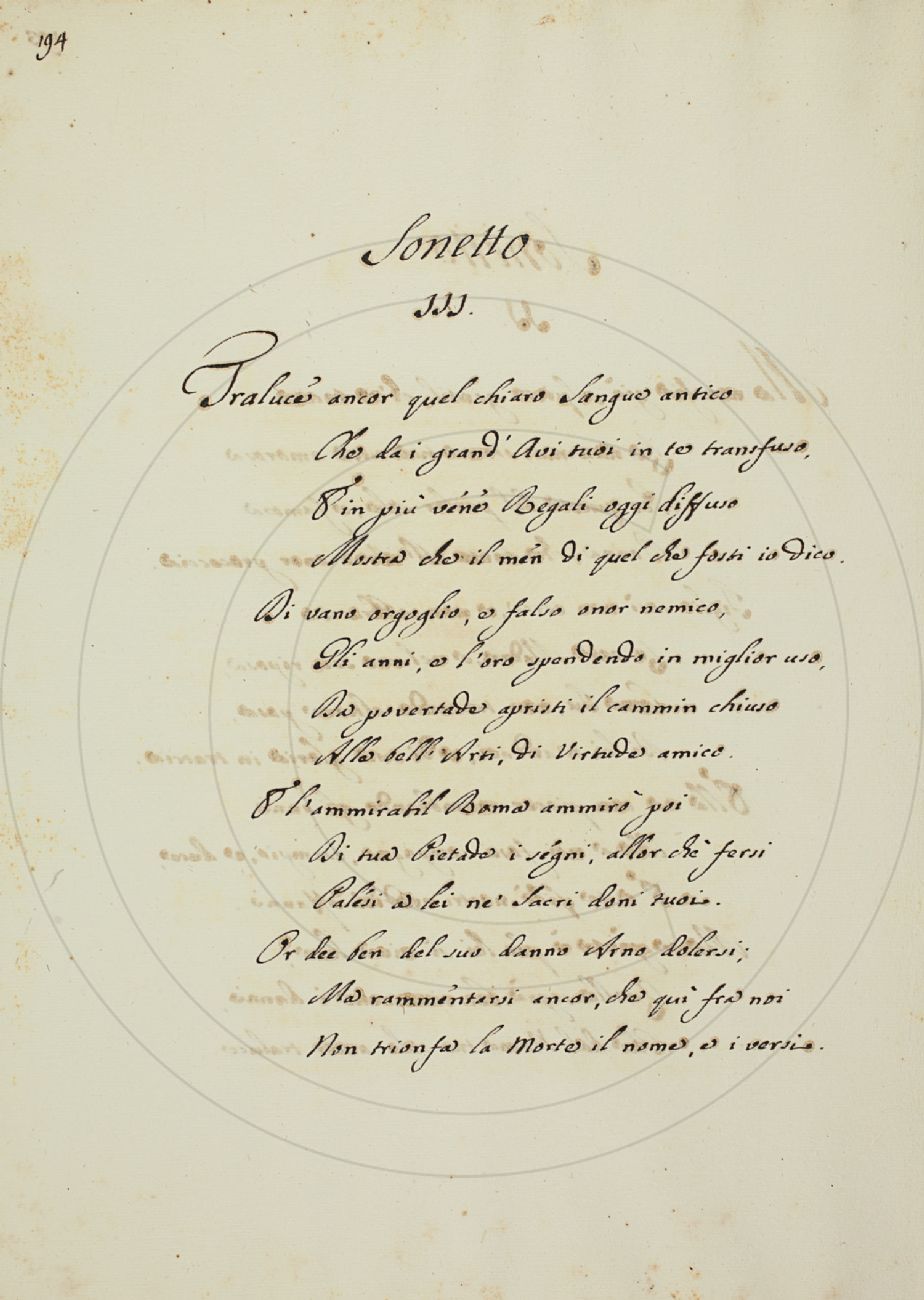 194
Sonetto
III.
Traluce ancor quel chiaro Sangue antico
Che da i grand' Avi tuoi in te transfuso,
E in più vene Regali oggi diffuso
Mostra che il men di quel che fosti io dico.
Di vano orgoglio, e falso onor nemico,
Gli anni, e l'oro spendendo in miglior uso,
Da povertade apristi il cammin chiuso
Alle bell' Arti, di Virtude amico.
E l'ammirabil Roma ammirò poi
Di tua Pietade i segni, allor chè fersi
Palesi a lei ne' Sacri doni tuoi.
Or dee ben del suo danno Arno dolersi;
Ma rammentarsi ancor, che quì fra noi
Non trionfa la Morte il nome, e i versi.